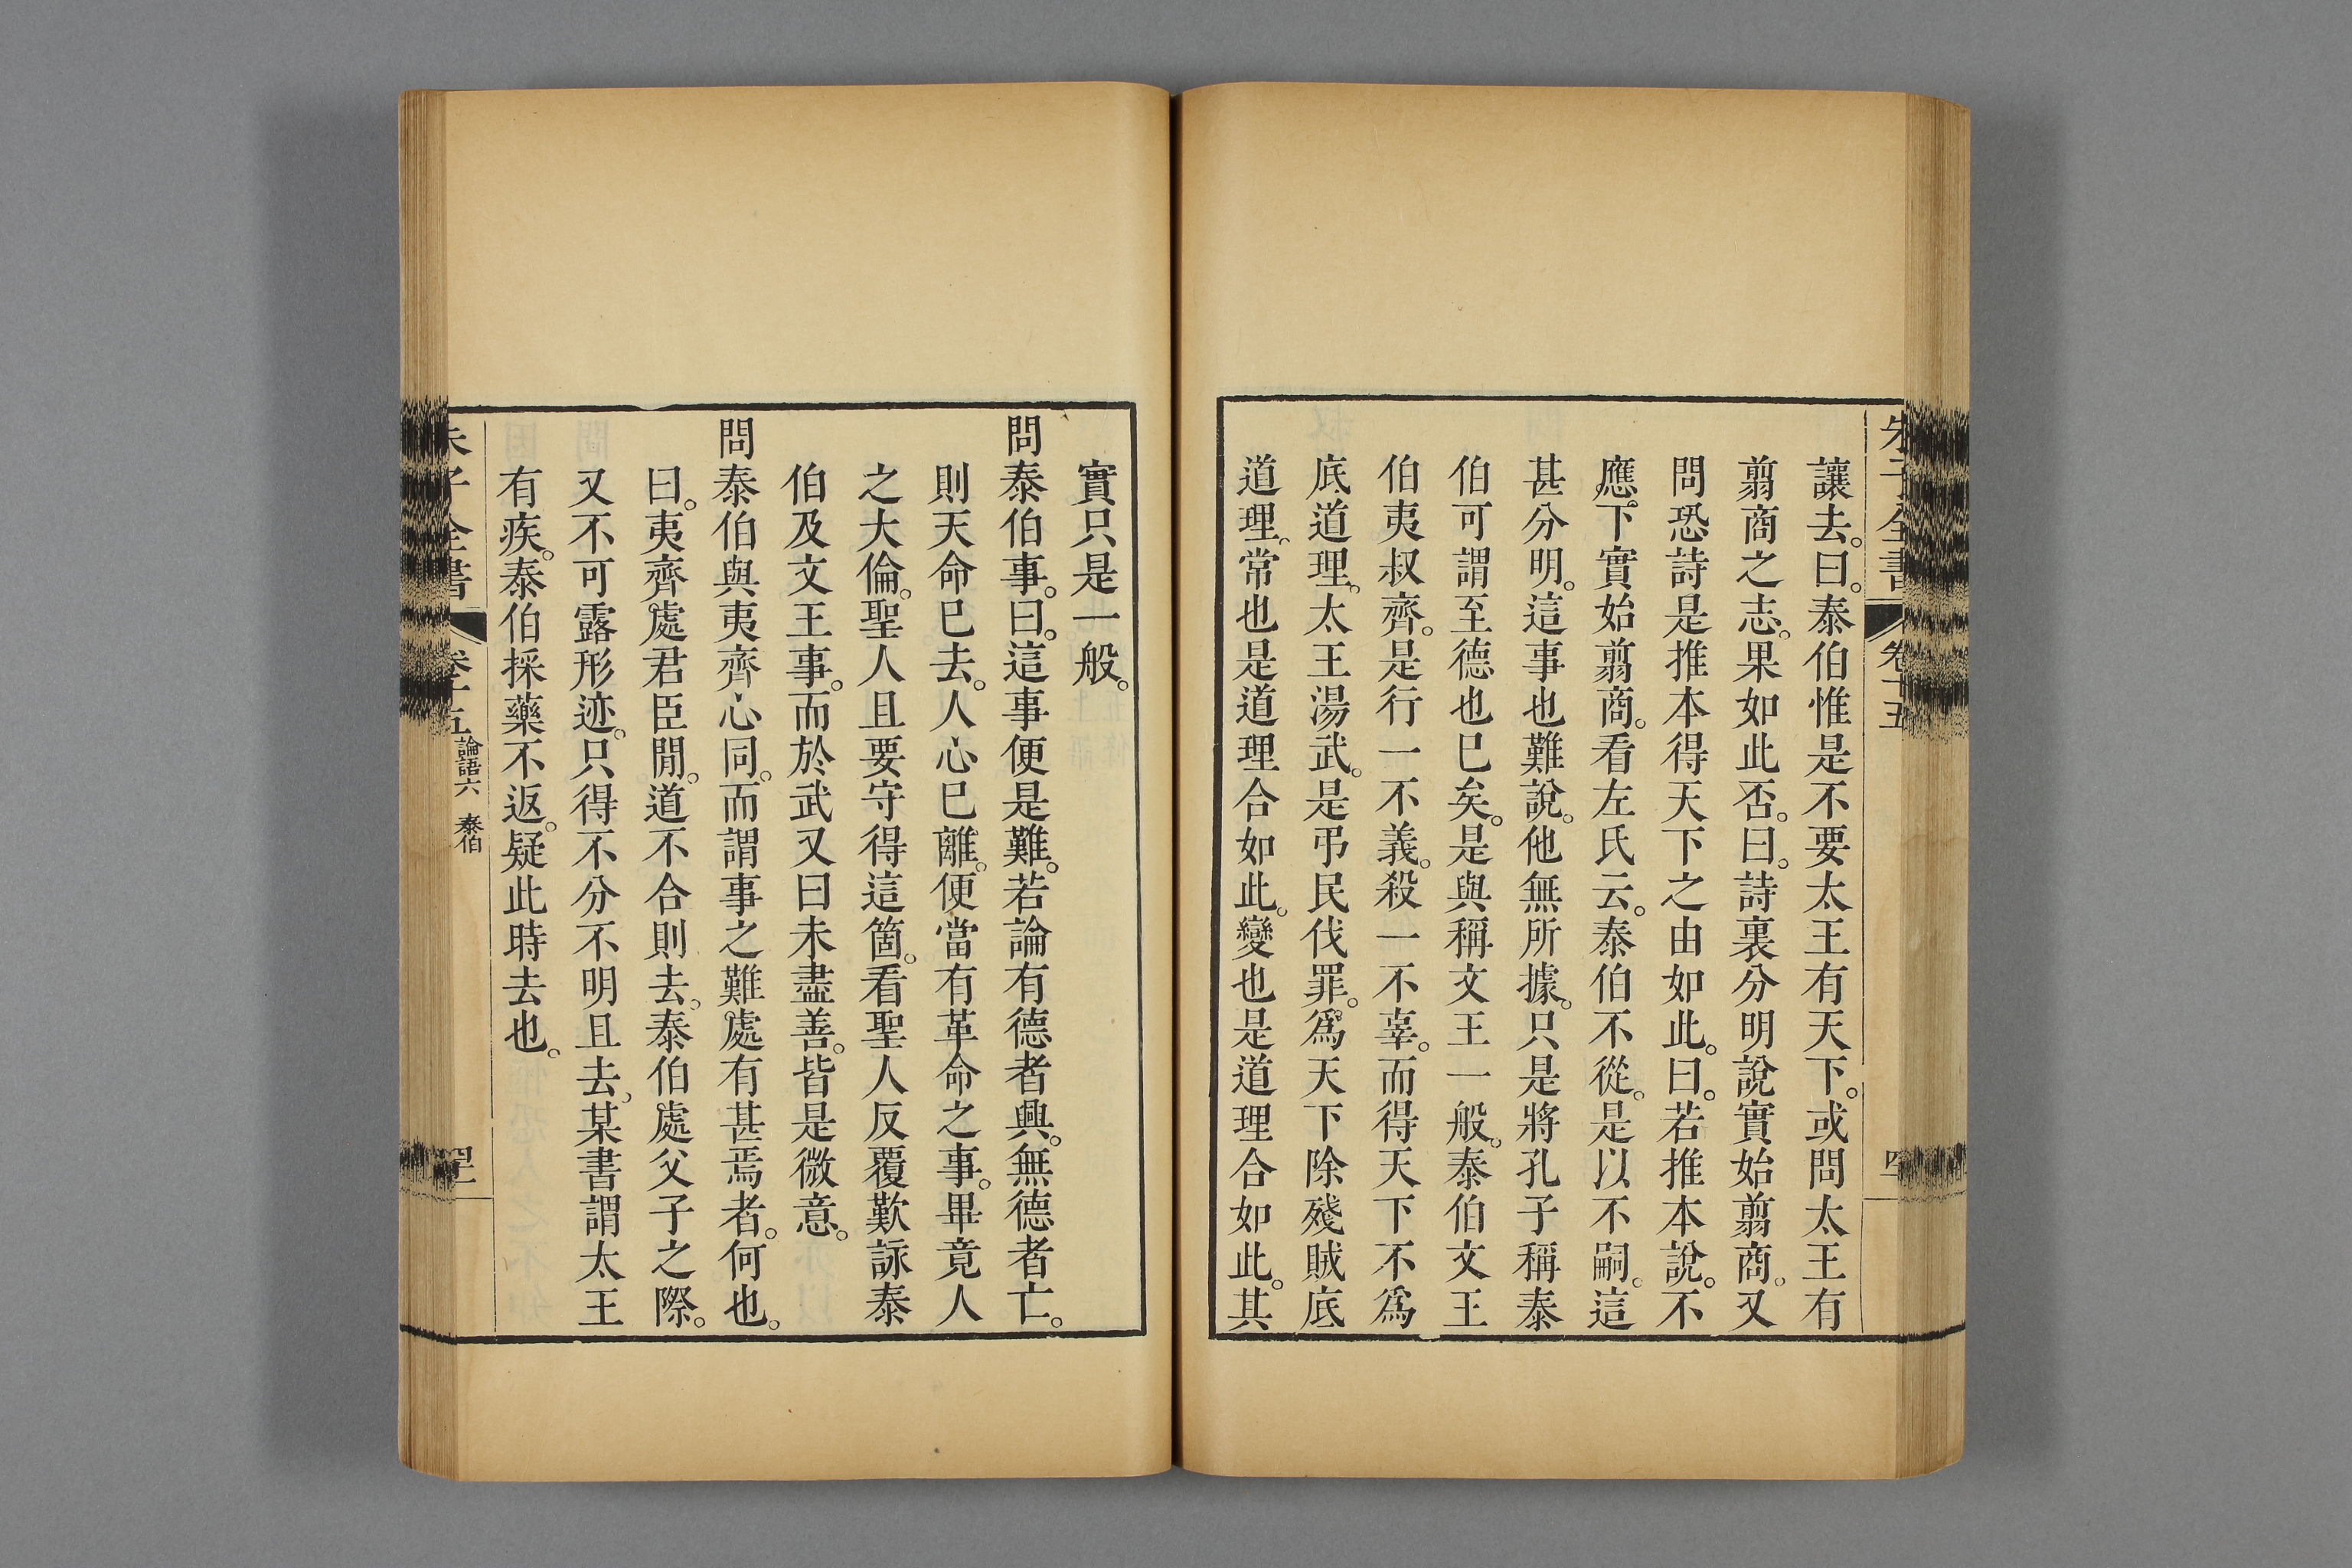 朱子全書 卷十五
讓去。曰。泰伯惟是不要太王有天下。或問太王有
翦商之志。果如此否。曰。詩裏分明說實始翦商。又
問恐詩是推本得天下之由如此。曰。若推本說。不
應下實始翦商。看左氏云。泰伯不從。是以不嗣。這
甚分明。這事也難說。他無所據。只是將孔子稱泰
伯可謂至德也已矣。是與稱文王一般。泰伯文王
伯夷叔齊。是行一不義。殺一不辜。而得天下不爲
底道理。太王湯武。是弔民伐罪。爲天下除殘賊底
道理。常也是道理合如此。變也是道理合如此。其
實只是一般。
問泰伯事。曰。這事便是難。若論有德者興。無德者亡。
則天命已去。人心已離。便當有革命之事。畢竟人
之大倫。聖人且要守得這箇。看聖人反覆歎詠泰
伯及文王事。而於武又曰未盡善。皆是微意。
問泰伯與夷齊心同。而謂事之難處有甚焉者。何也。
曰。夷齊處君臣閒。道不合則去。泰伯處父子之際。
又不可露形迹。只得不分不明且去。某書謂太王
有疾。泰伯採藥不返。疑此時去也。
朱子全書 卷十五 論語六 泰伯